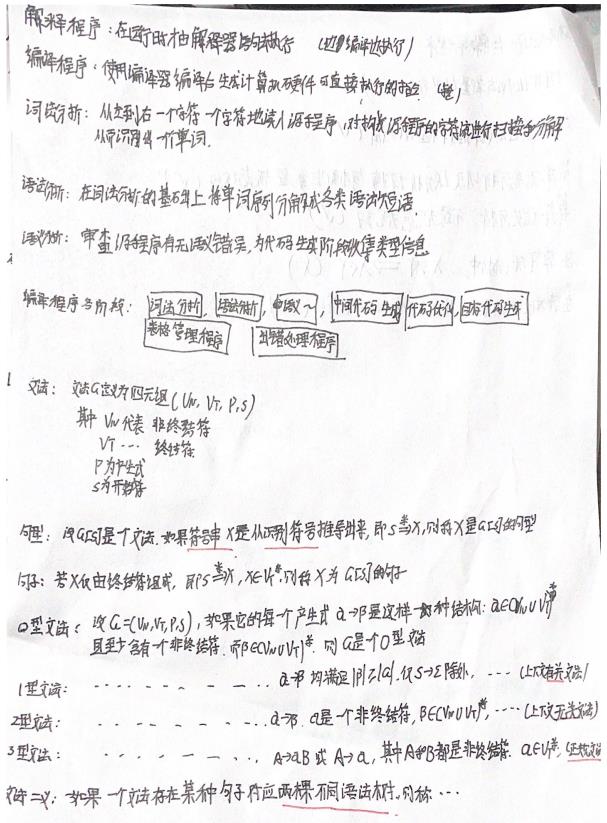 解释程序：在运行时才由解释器解释执行 (边编译边执行)
编译程序：使用编译器编译后生成计算机硬件可直接执行的
词法分析：从左到右一个字符一个字符地读入源程序，对构成源程序的字符流进行扫描和分解
从而识别出一个个单词.
语法分析：在词法分析的基础上将单词序列分解成各类语法短语
语义分析：审查源程序有无语义错误,为代码生成阶段收集类型信息
编译程序各阶段： 词法分析, 语法分析, 语义~, 中间代码生成 代码优化, 目标代码生成
表格管理程序 出错处理程序
文法： 文法G定义为四元组(VN, VT, P, S)
其中 VN代表 非终结符
VT … 终结符.
P为产生式
S为开始符
句型：设G[S]是个文法.如果符号串X是从识别符号推导出来,即S⇒*X,则称X是G[S]的句型
句子：若X仅由终结符组成，即S⇒*X, X∈VT*.则称X为G[S]的句子
0型文法：设G=(VN,VT,P,S)，如果它的每个产生式 α→β是这样一种结构：α∈(VN∪VT)*
且至少含有一个非终结符.而β∈(VN∪VT)*. 则G是个0型文法
1型文法： ………… α→β 均满足|β|≥|α|.仅S→ε除外, … (上下文有关文法)
2型文法： ………… α→β. α是一个非终结符, β∈(VN∪VT)*, … (上下文无关文法)
3型文法： ………… A→αB 或 A→α, 其中A和B都是非终结符. α∈VT*, (正规文法
文法二义：如果一个文法存在某种句子对应两棵不同语法树.则称…